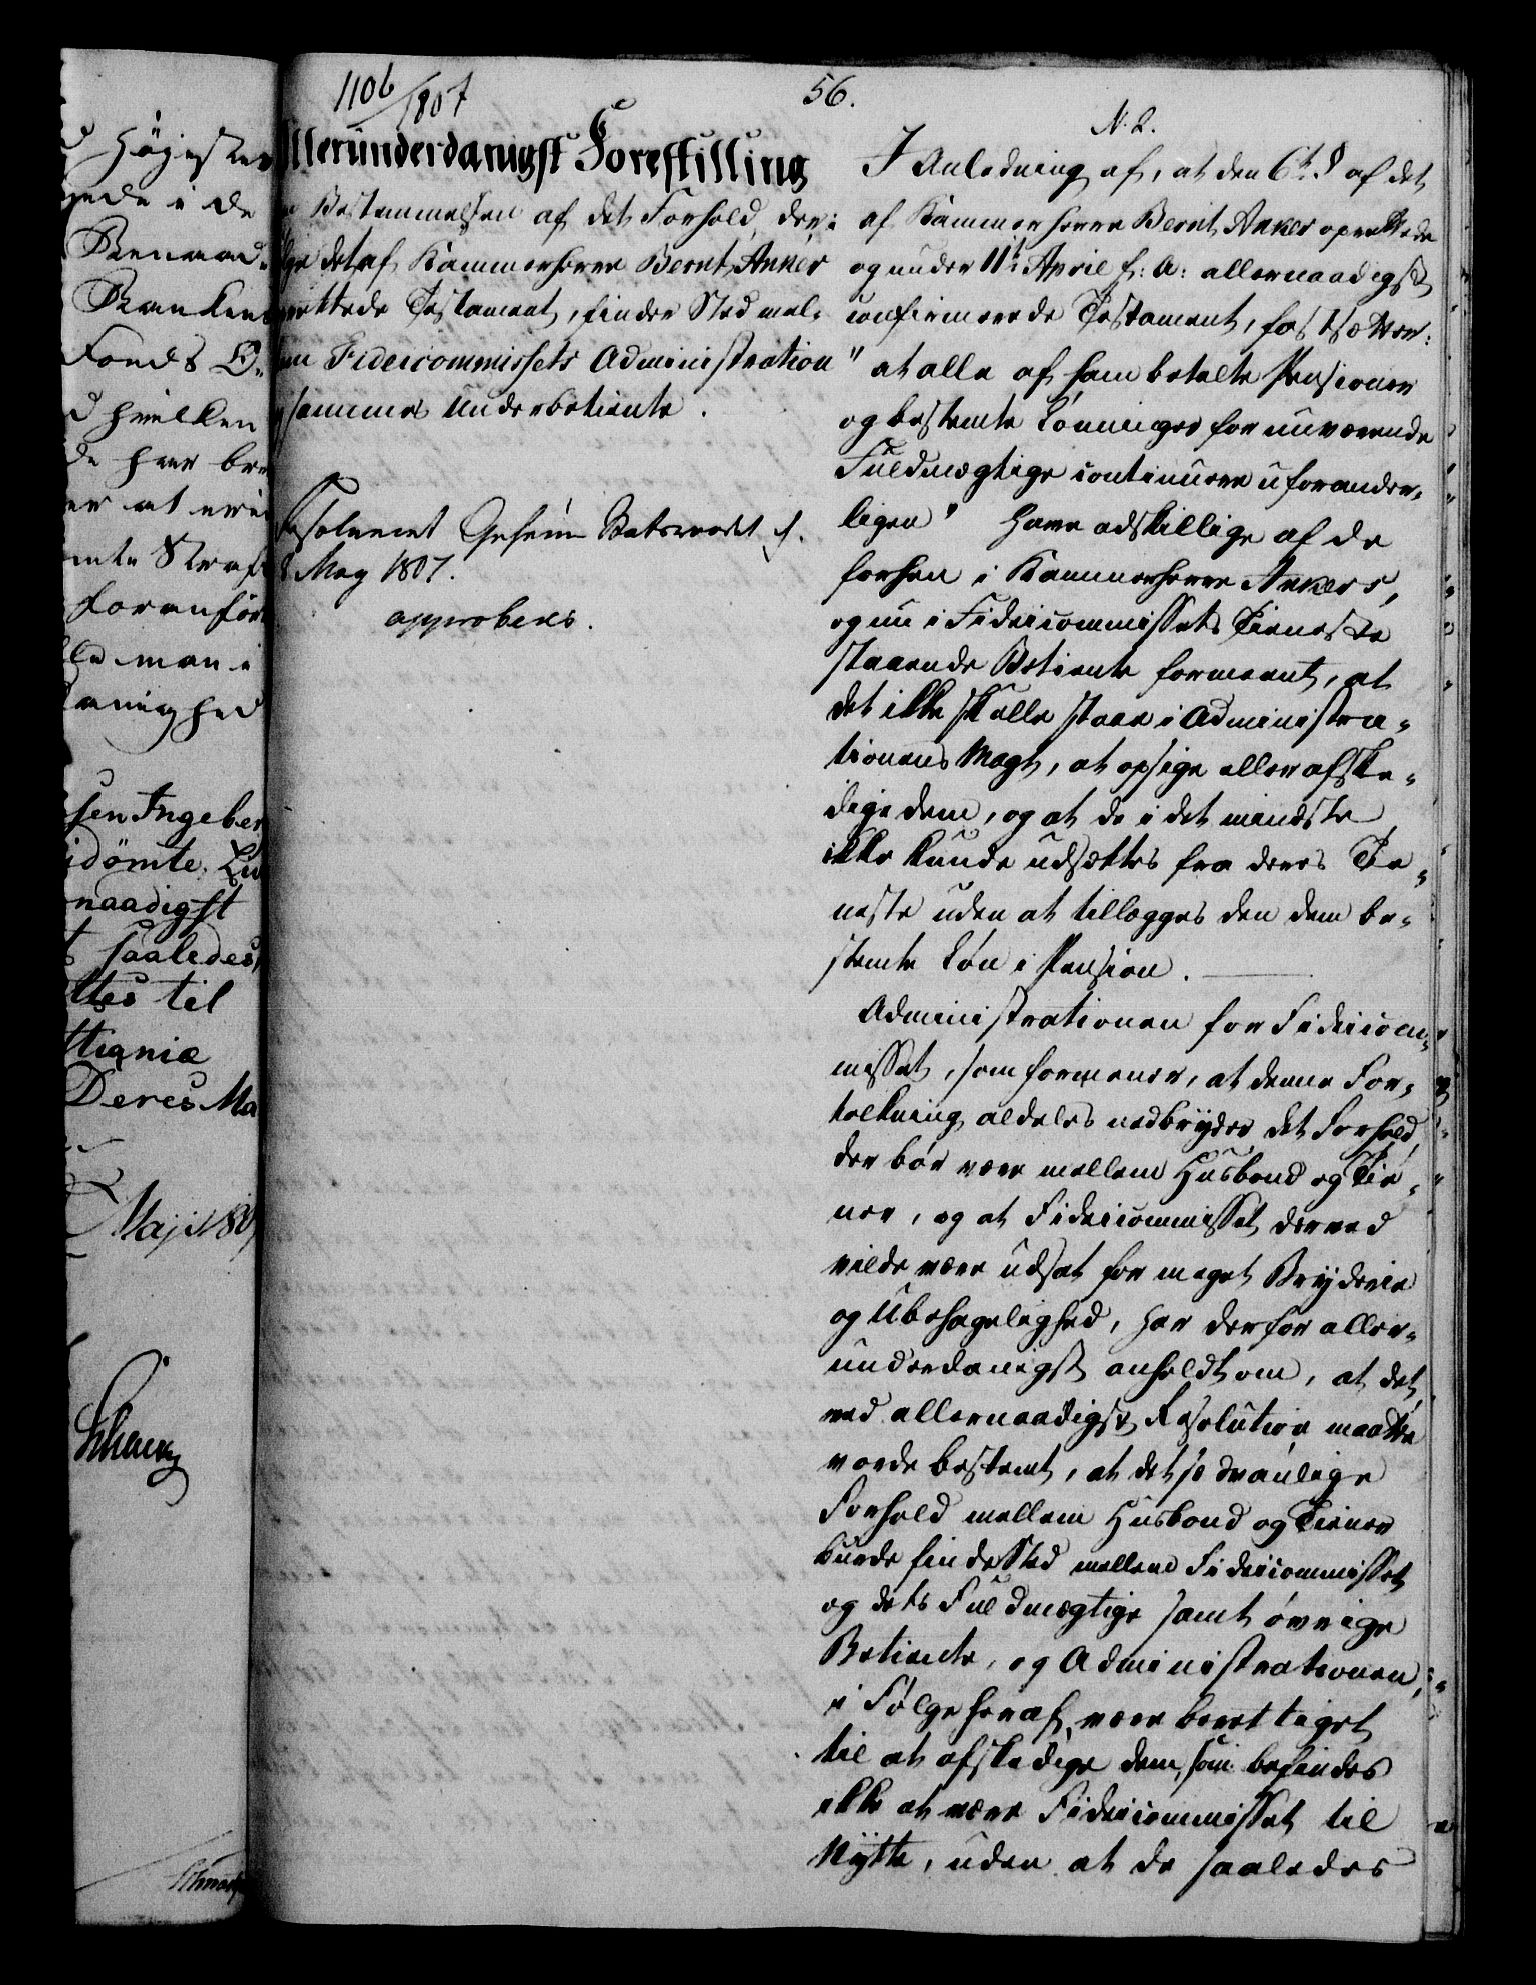 d Høieste
Fonds O.
d hvilken
de har be
mte Straf
foranför
lle man i
danighed
sen Ingeber
idömte
naadigst
saaledes,
ttes til
stianiæ
Deres Ma
Maji 180
1106/1807
56.
N. 2.
Allerunderdanigst Forestilling
Bestemmelsen af det Forhold, der i
følge det af Kammerherre Bernt Anker
oprettede Testament, finder Sted mel-
lem Fideicommissets Administration
og sammes Underbetiente.
Resolveret Geheime Statsraadet d.
May 1807.
approberes.
I Anledning af, at den 6te § af det
af Kammerherre Bernt Anker oprettede
og under 11te April f: A: allernaadigst
confirmerede Testament, fastsætter:
"at alle af ham betalte Pensioner
og bestemte Lønninger for nuværende
Fuldmægtige continuere uforander-
ligen" have adskillige af de
forhen i Kammerherre Ankers,
og nu i Fideicommissets Tieneste
staaende Betiente formeent, at
det ikke skulle staae i Administra-
tionens Magt, at opsige eller afske-
dige dem, og at de i det mindste
ikke kunde udsættes fra deres Tie-
neste uden at tillægges den dem be-
stemte Løn i Pension.
Administrationen for Fideicom-
misset, som formener, at denne For-
tolkning aldeles nedbryder det Forhold,
der bør være mellem Husbond og Tie-
ner, og at Fideicommisset derved
vilde være udsat for meget Bryderie
og Ubehagelighed, har derfor aller-
underdanigst anholdt om, at det
ved allernaadigst Resolution maatte
vorde bestemt, at det sædvanlige
Forhold mellem Husbond og Tiener
burde finde Sted mellem Fideicommisset
og dets Fuldmægtige samt øvrige
Betiente, og Administrationen,
i Følge heraf, være berettiget
til at afskedige dem, som befindes
ikke at være Fideicommisset til
Nytte, uden at de saaledes